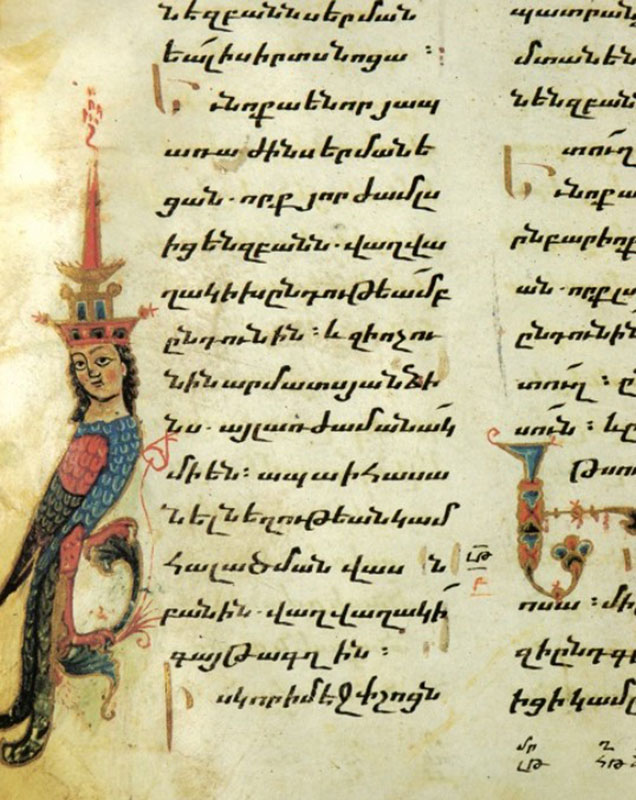 նեզբանն սերման
եալ ի սիրտս նոցա :
Եւ նոքա են որ յապ
առաժին սերմանե
ցան. որք յորժամ լս
իցեն զբանն. վաղվա
ղակի խընդութեամբ
ընդունին : և զի ոչ ու
նին արմատս յանձի
նս. այլ առ ժամանակ
մի են : ապա ի հասա
նել նեղութեան կամ
հալածման վասն
բանին. վաղվաղակի
գայթագղին :
Իսկ որ ի մէջ փշոցն
պատրան
մտանեն
նեն զբան
տուղ
Եւ նոքա
ան. որք լս
ընդունին
տուղ : ը
սուն : և ը
ոսա : մի
իցի կամ